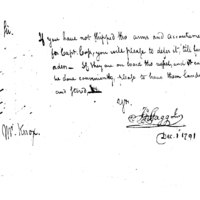 Sir.
If you have not shipped the arms and accoutrements
for Capt. Cass, you will please to defer it, till further
orders — If they are on board the vessel, and it can
be done conveniently, please to have them landed
and stored.
Yrs.
Dec. 1 1791
Mr. Knox